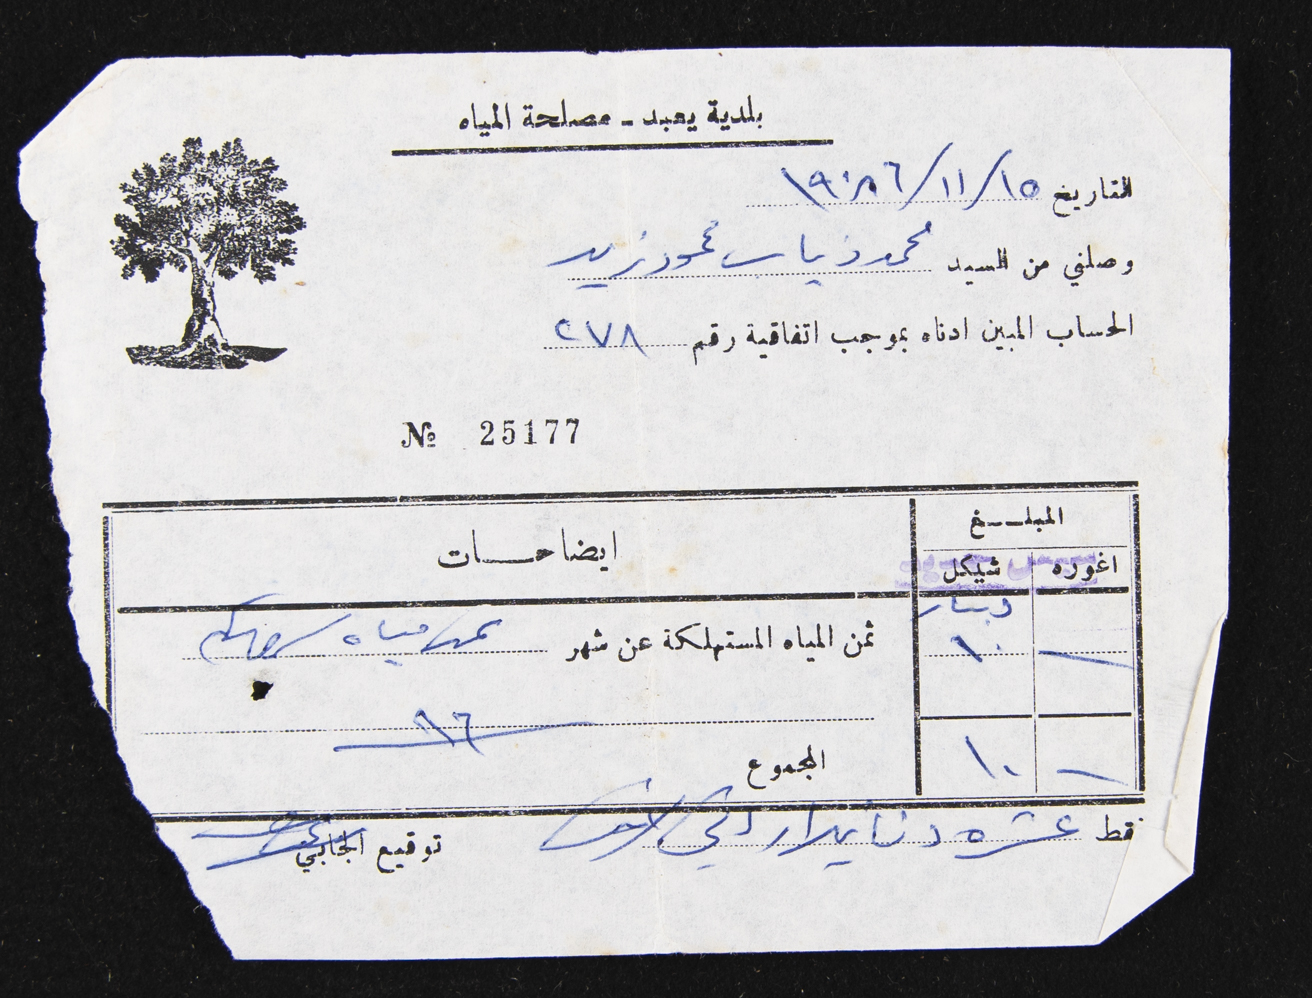 بلدية يعبد ـ مصلحة المياه
التاريخ ١٥/١١/١٩٨٦
وصلني من السيد محمد ذياب محمود زيد
الحساب المبين ادناه بموجب اتفاقية رقم ٢٧٨
№ 25177
المبلــغ
ايضاحــات
اغوره شيكل
دينار
ثمن المياه المستهلكة عن شهر ثمن مياه
— ١٠
٨٦
المجموع
— ١٠
فقط عشرة دنانير اردني
توقيع الجابي